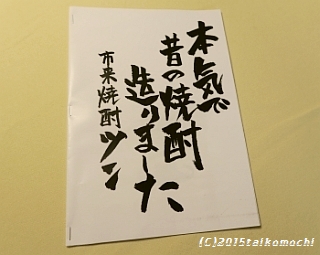 本気で
昔の焼酎
造りました
市来焼酎ツン
(C)2015taikomochi